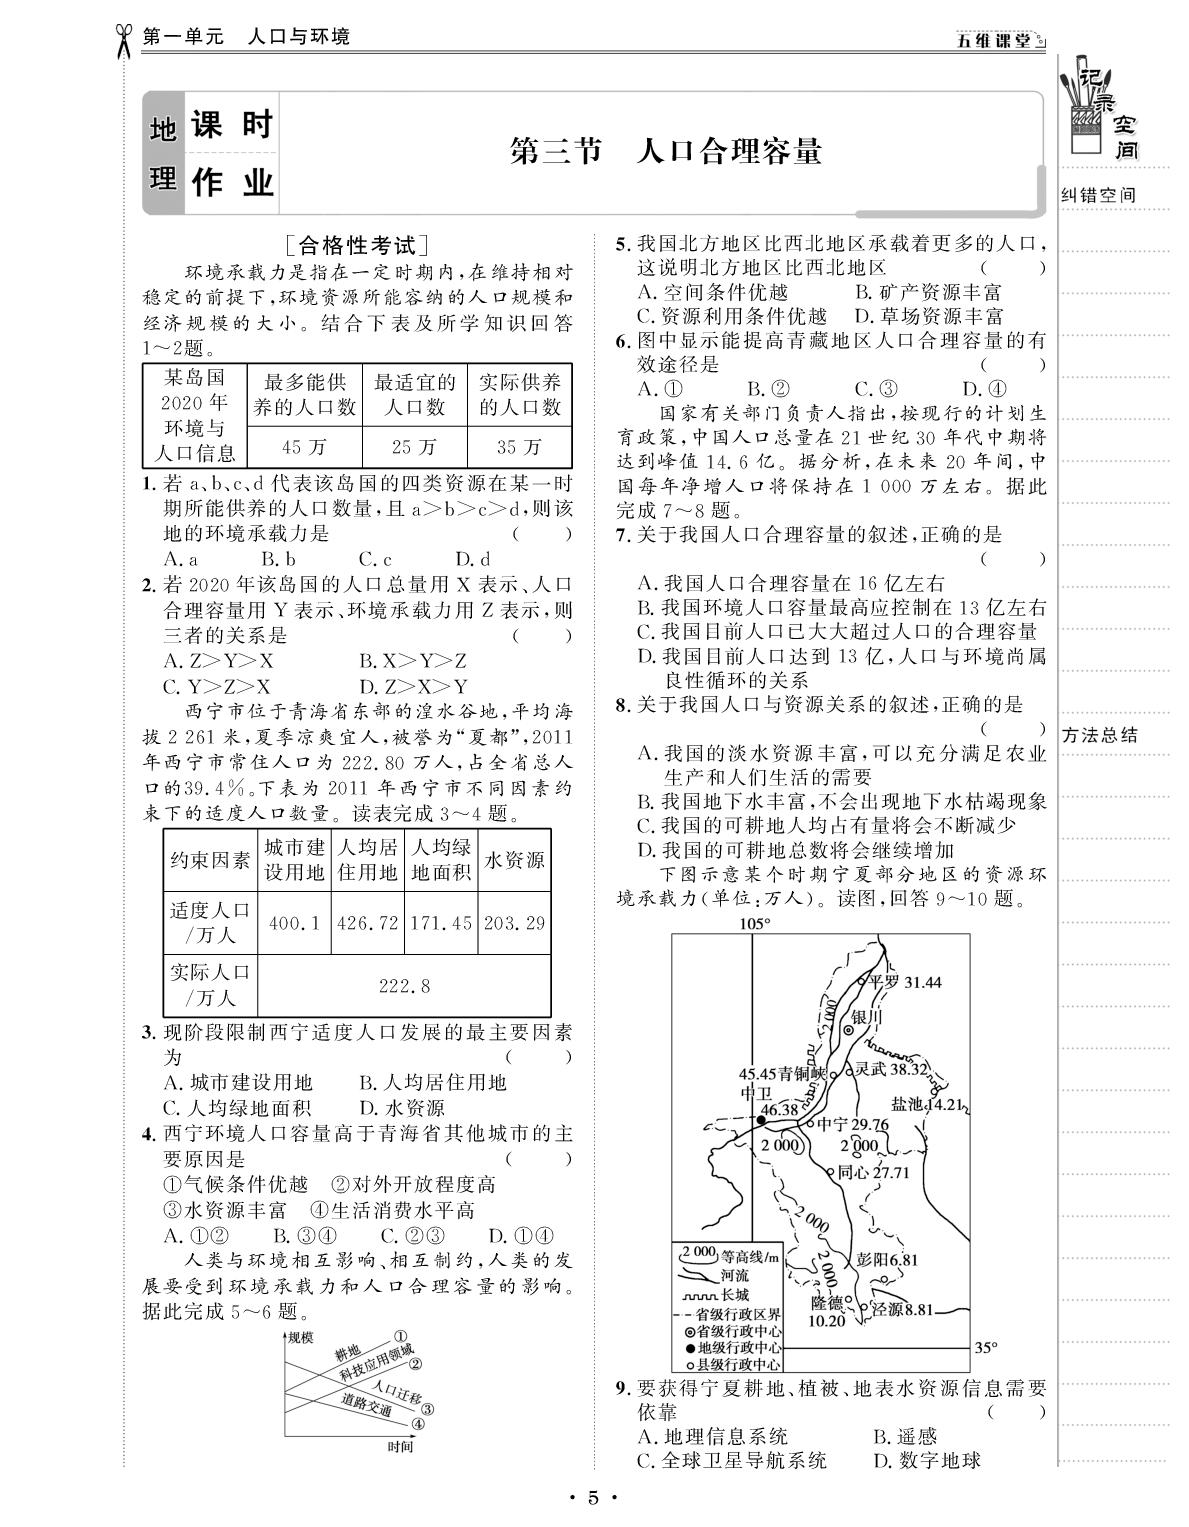 第一单元　人口与环境
五维课堂
地理
课时作业
第三节　人口合理容量
记录空间
纠错空间
方法总结
[合格性考试]
环境承载力是指在一定时期内,在维持相对
稳定的前提下,环境资源所能容纳的人口规模和
经济规模的大小。结合下表及所学知识回答
1～2题。
某岛国 2020 年 环境与 人口信息
最多能供养的人口数　最适宜的人口数　实际供养的人口数
45 万　25 万　35 万
1. 若 a、b、c、d 代表该岛国的四类资源在某一时
期所能供养的人口数量,且 a＞b＞c＞d,则该
地的环境承载力是　(　　)
A. a　B. b　C. c　D. d
2. 若 2020 年该岛国的人口总量用 X 表示、人口
合理容量用 Y 表示、环境承载力用 Z 表示,则
三者的关系是　(　　)
A. Z＞Y＞X　B. X＞Y＞Z
C. Y＞Z＞X　D. Z＞X＞Y
西宁市位于青海省东部的湟水谷地,平均海
拔 2 261 米,夏季凉爽宜人,被誉为“夏都”,2011
年西宁市常住人口为 222.80 万人,占全省总人
口的39.4%。下表为 2011 年西宁市不同因素约
束下的适度人口数量。读表完成 3～4 题。
约束因素　城市建设用地　人均居住用地　人均绿地面积　水资源
适度人口/万人　400.1　426.72　171.45　203.29
实际人口/万人　222.8
3. 现阶段限制西宁适度人口发展的最主要因素
为　(　　)
A. 城市建设用地　B. 人均居住用地
C. 人均绿地面积　D. 水资源
4. 西宁环境人口容量高于青海省其他城市的主
要原因是　(　　)
①气候条件优越　②对外开放程度高
③水资源丰富　④生活消费水平高
A. ①②　B. ③④　C. ②③　D. ①④
人类与环境相互影响、相互制约,人类的发
展要受到环境承载力和人口合理容量的影响。
据此完成 5～6 题。
规模
耕地　①
科技应用领域　②
人口迁移　③
道路交通　④
时间
5. 我国北方地区比西北地区承载着更多的人口,
这说明北方地区比西北地区　(　　)
A. 空间条件优越　B. 矿产资源丰富
C. 资源利用条件优越　D. 草场资源丰富
6. 图中显示能提高青藏地区人口合理容量的有
效途径是　(　　)
A. ①　B. ②　C. ③　D. ④
国家有关部门负责人指出,按现行的计划生
育政策,中国人口总量在 21 世纪 30 年代中期将
达到峰值 14.6 亿。据分析,在未来 20 年间,中
国每年净增人口将保持在 1 000 万左右。据此
完成 7～8 题。
7. 关于我国人口合理容量的叙述,正确的是
(　　)
A. 我国人口合理容量在 16 亿左右
B. 我国环境人口容量最高应控制在 13 亿左右
C. 我国目前人口已大大超过人口的合理容量
D. 我国目前人口达到 13 亿,人口与环境尚属
良性循环的关系
8. 关于我国人口与资源关系的叙述,正确的是
(　　)
A. 我国的淡水资源丰富,可以充分满足农业
生产和人们生活的需要
B. 我国地下水丰富,不会出现地下水枯竭现象
C. 我国的可耕地人均占有量将会不断减少
D. 我国的可耕地总数将会继续增加
下图示意某个时期宁夏部分地区的资源环
境承载力(单位:万人)。读图,回答 9～10 题。
105°
平罗 31.44
2 000
银川
45.45青铜峡
灵武 38.32
中卫
46.38
盐池14.21
中宁 29.76
2 000
2 000
同心 27.71
2 000
2 000
彭阳6.81
隆德
10.20
泾源8.81
35°
2 000 等高线/m
河流
长城
省级行政区界
省级行政中心
地级行政中心
县级行政中心
9. 要获得宁夏耕地、植被、地表水资源信息需要
依靠　(　　)
A. 地理信息系统　B. 遥感
C. 全球卫星导航系统　D. 数字地球
· 5 ·